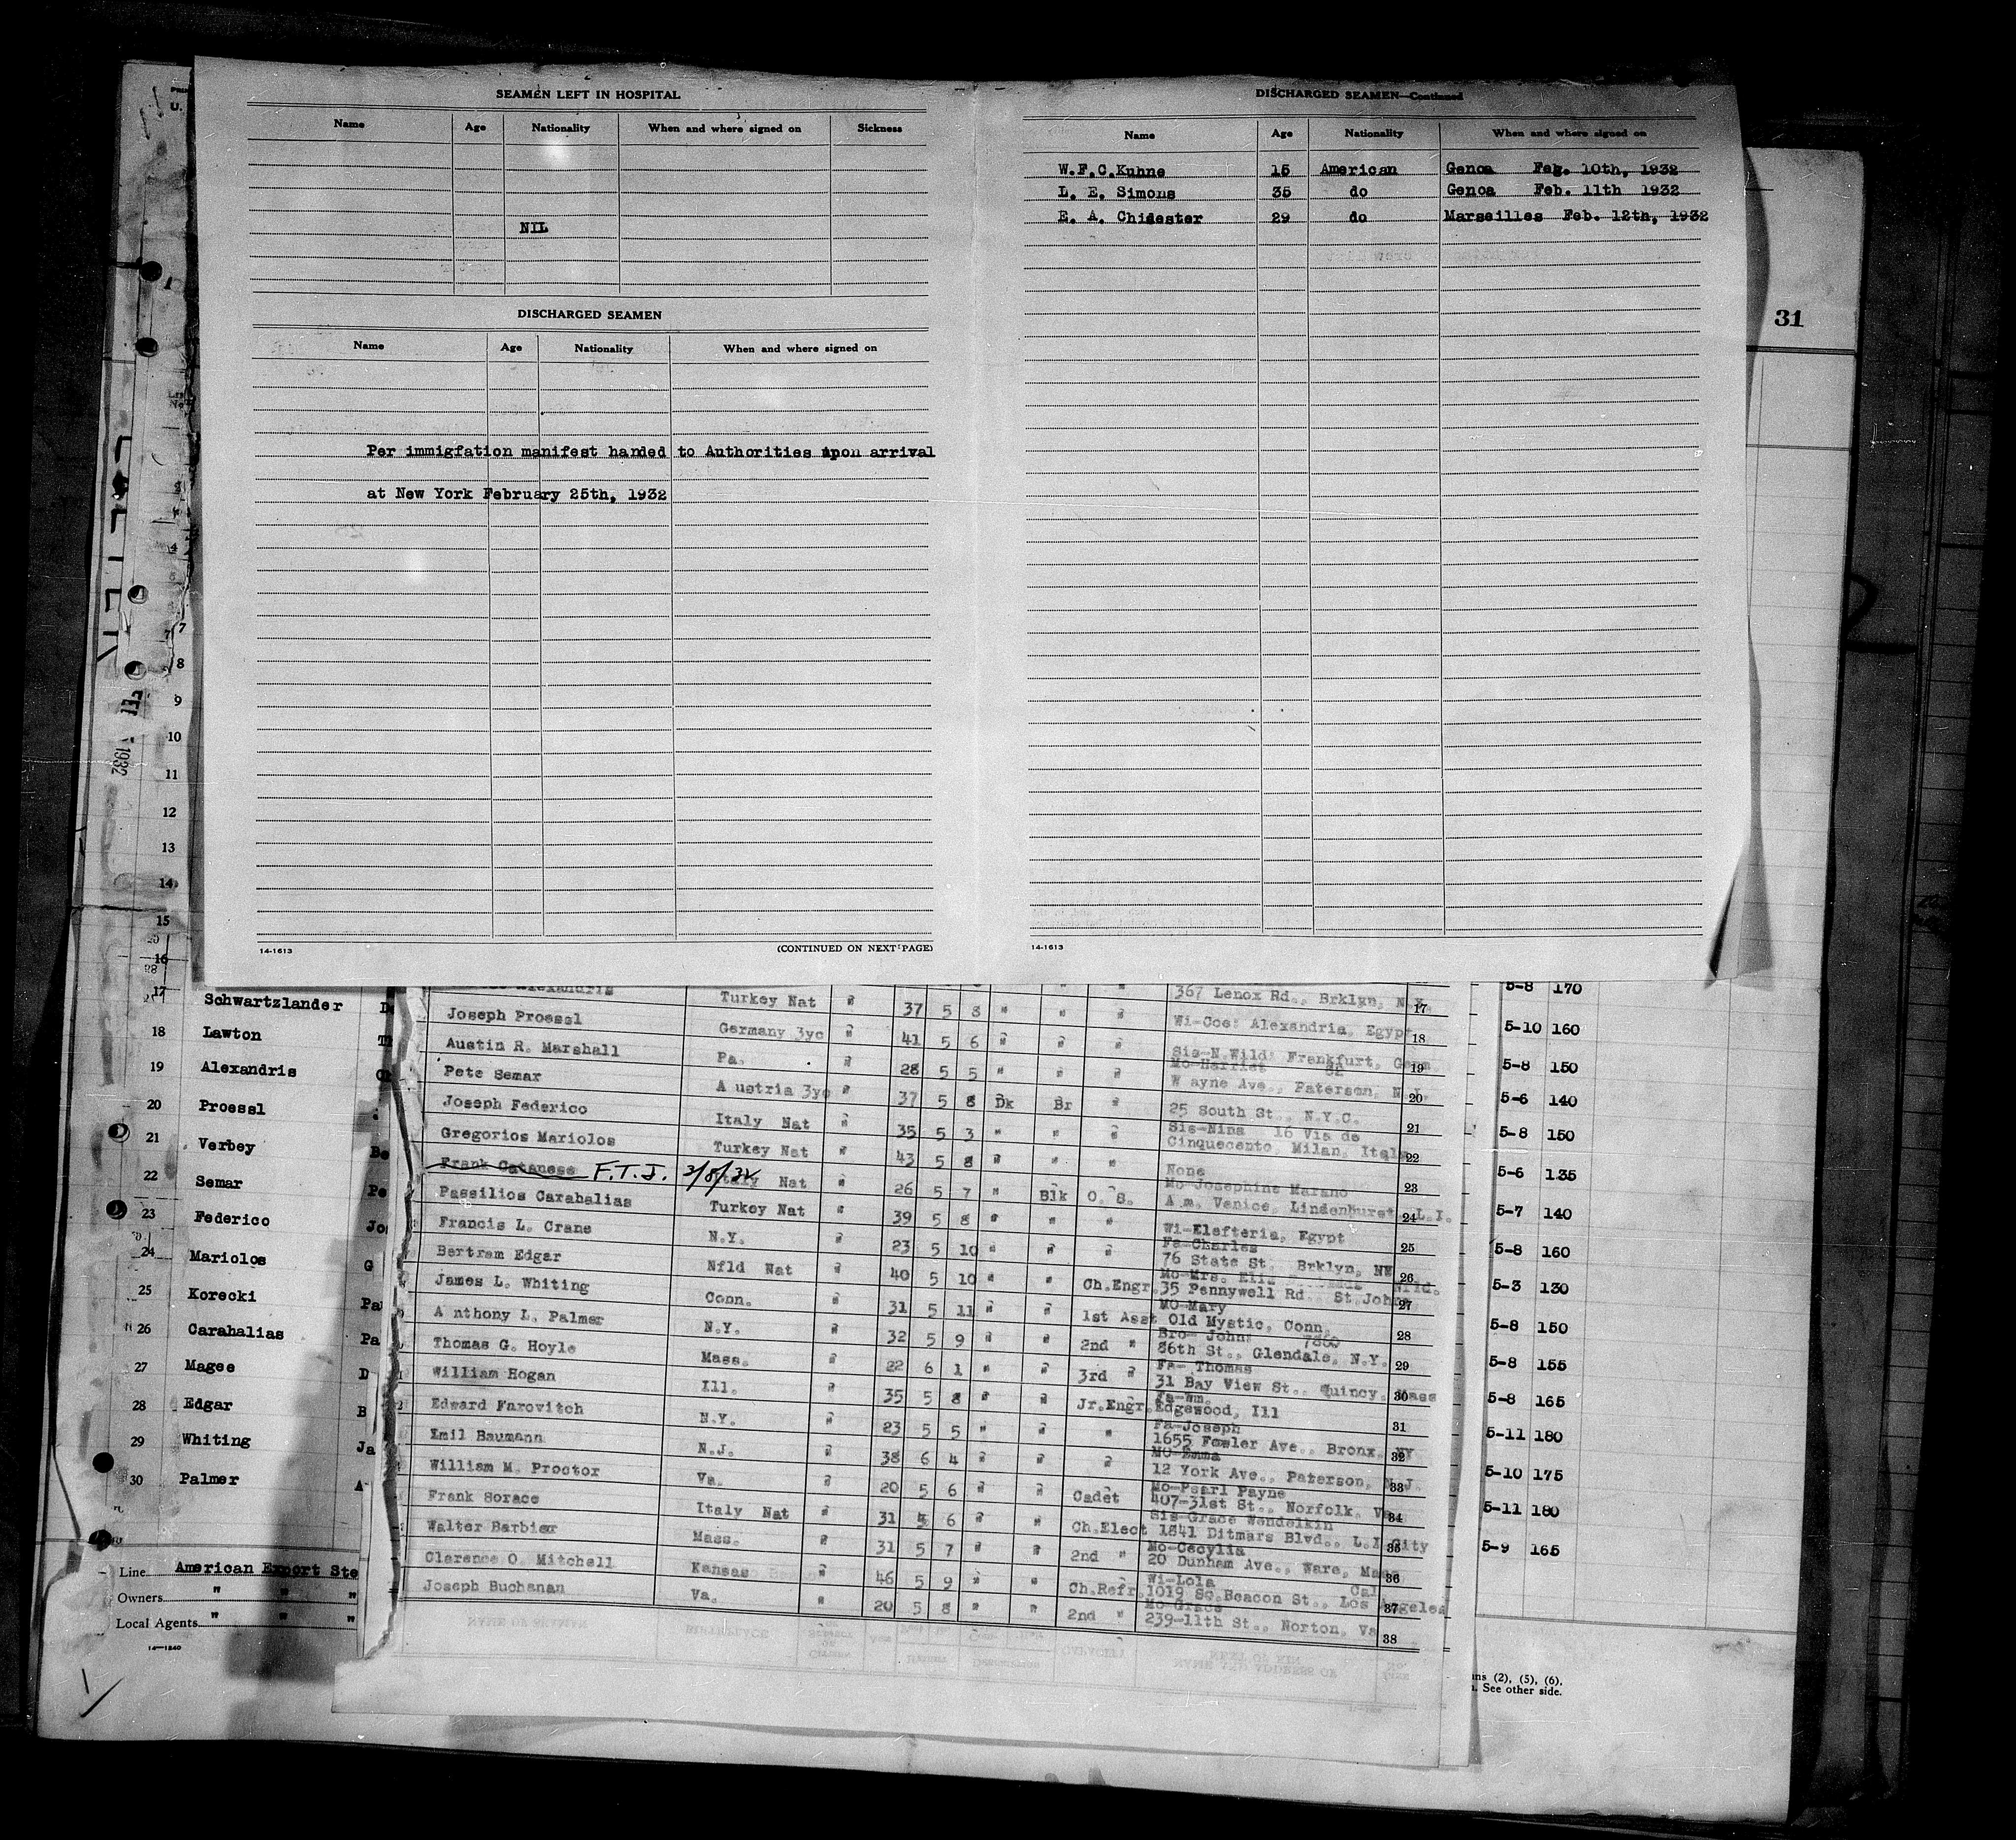 SEAMEN LEFT IN HOSPITAL
Name Age Nationality When and where signed on Sickness
NIL
DISCHARGED SEAMEN
Name Age Nationality When and where signed on
Per immigfation manifest handed to Authorities upon arrival
at New York February 25th, 1932
14-1613 (CONTINUED ON NEXT PAGE)
DISCHARGED SEAMEN—Continued
Name Age Nationality When and where signed on
W.F.C.Kuhne 15 American Genoa Feg. 10th, 1932
L. E. Simons 35 do Genoa Feb. 11th 1932
E. A. Chidester 29 do Marseilles Feb. 12th, 1932
14-1613
31
7
8
9
10
11
12
13
14
15
16
1932
17 Schwartzlander
18 Lawton
19 Alexandris
20 Proessl
21 Verbey
22 Semar
23 Federico
24 Mariolos
25 Korecki
26 Carahalias
27 Magee
28 Edgar
29 Whiting
30 Palmer
Line American Export Ste
Owners " " "
Local Agents " " "
14-1240
Turkey Nat " 37 5 8 " " " 367 Lenox Rd., Brklyn, N.Y. 17
Joseph Proessl Germany 3yc " 41 5 6 " " " Wi-Cos: Alexandria, Egypt 18
Austin R. Marshall Pa. " 28 5 5 " " " Sis-N.Wild: Frankfurt, Germ 19
Mo-Harriet 82
Pete Semar Austria 3yc " 37 5 8 Dk Br " Wayne Ave., Paterson, N.J. 20
Joseph Federico Italy Nat " 35 5 3 " " " 25 South St., N.Y.C. 21
Sis-Nina 16 Via de
Gregorios Mariolos Turkey Nat " 43 5 8 " " " Cinquecento, Milan, Italy 22
Frank Catanese F.T.J. 3/8/32 Italy Nat " 26 5 7 " Blk O.S. None 23
Mo-Josephine Marano
Passilios Carahalias Turkey Nat " 39 5 8 " " " Am. Venice, Lindenhurst, L.I. 24
Francis L. Crane N.Y. " 23 5 10 " " " Wi-Elefteria, Egypt 25
Fa-Charles
Bertram Edgar Nfld Nat " 40 5 10 " " Ch.Engr. 76 State St. Brklyn, NY 26
James L. Whiting Conn. " 31 5 11 " " 1st Asst 35 Pennywell Rd. St.Johns 27
Mo-Mary
Anthony L. Palmer N.Y. " 32 5 9 " " 2nd " Old Mystic, Conn. 28
Bro-John: 7860
Thomas G. Hoyle Mass. " 22 6 1 " " 3rd " 86th St., Glendale, N.Y. 29
Fa-Thomas
William Hogan Ill. " 35 5 8 " " Jr.Engr. 31 Bay View St., Quincy, Mass 30
Fa-Wm.
Edward Farovitch N.Y. " 23 5 5 " " " Edgewood, Ill 31
Fa-Joseph
Emil Baumann N.J. " 38 6 4 " " " 1655 Fowler Ave., Bronx, NY 32
Mo-Emma
William M. Proctor Va. " 20 5 6 " " Cadet 12 York Ave., Paterson, N.J. 33
Mo-Pearl Payne
Frank Sorace Italy Nat " 31 5 6 " " Ch.Elect 407-31st St., Norfolk, Va 34
Sis-Grace Wendelkin
Walter Barbier Mass. " 31 5 7 " " 2nd " 1841 Ditmars Blvd., L.I.City 35
Mo-Cecylia
20 Dunham Ave., Ware, Mass 36
Clarence O. Mitchell Kansas " 46 5 9 " " Ch.Refr. Wi-Lola Cal
1019 So.Beacon St., Los Angeles 37
Joseph Buchanan Va. " 20 5 8 " " 2nd " Mo-Grace
239-11th St., Norton, Va 38
5-8 170
5-10 160
5-8 150
5-6 140
5-8 150
5-6 135
5-7 140
5-8 160
5-3 130
5-8 150
5-8 155
5-8 165
5-11 180
5-10 175
5-11 180
5-9 165
ns (2), (5), (6).
See other side.